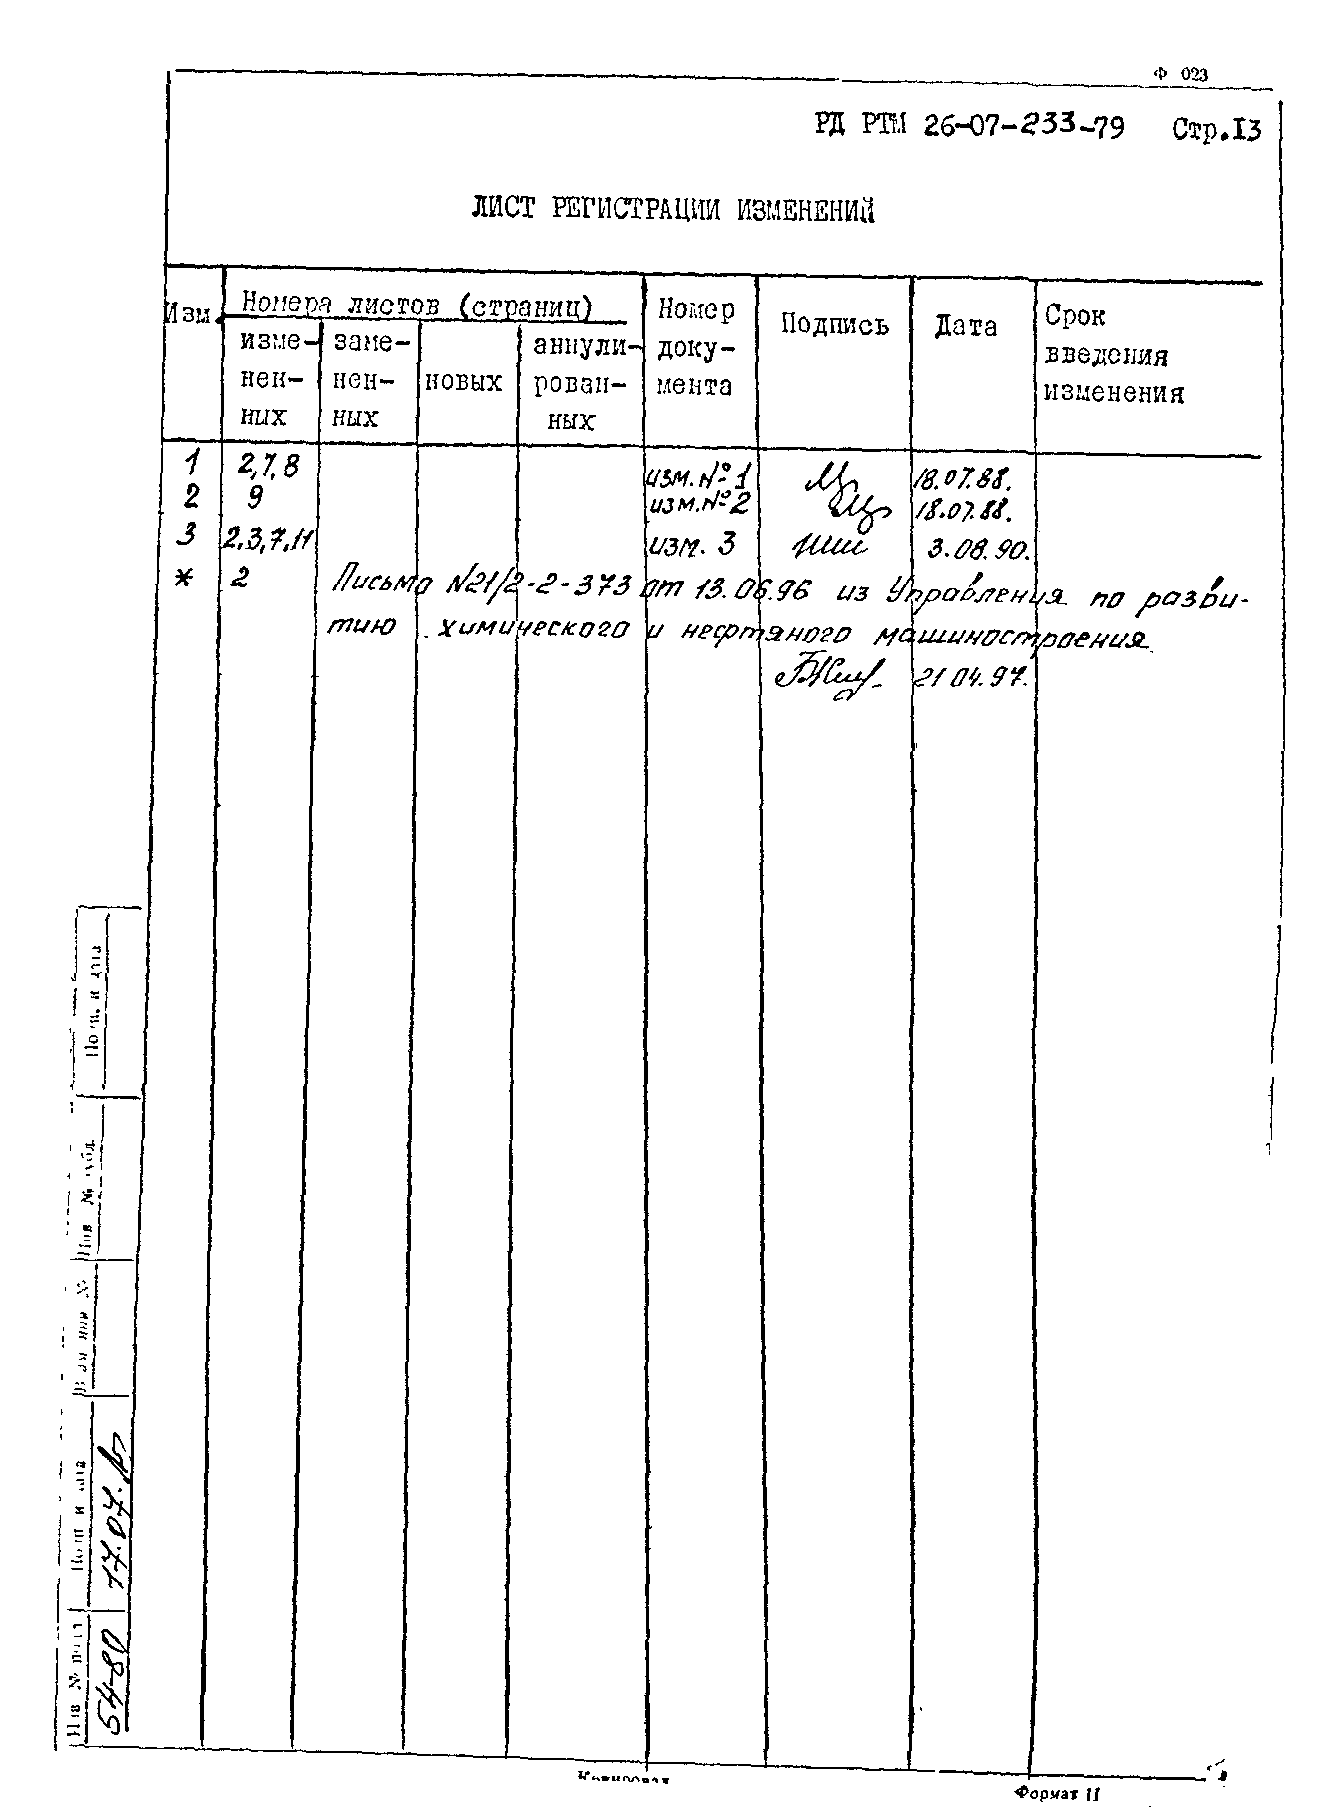 Ф 023
РД РТМ 26-07-233-79 Стр.13
ЛИСТ РЕГИСТРАЦИИ ИЗМЕНЕНИЙ
Изм.
Номера листов (страниц)
изме-
нен-
ных
заме-
нен-
ных
новых
аннули-
рован-
ных
Номер
доку-
мента
Подпись
Дата
Срок
введения
изменения
1 2,7,8 изм. № 1 18.07.88.
2 9 изм. № 2 18.07.88.
3 2,3,7,11 изм. 3 3.08.90.
* 2 Письмо №21/2-2-373 от 13.06.96 из Управления по разви-
тию химического и нефтяного машиностроения.
21.04.97.
Подп. и дата
Инв № дубл.
Взам инв №
Подп и дата
17.07.
Инв № подл
54-80
Копировал
Формат 11